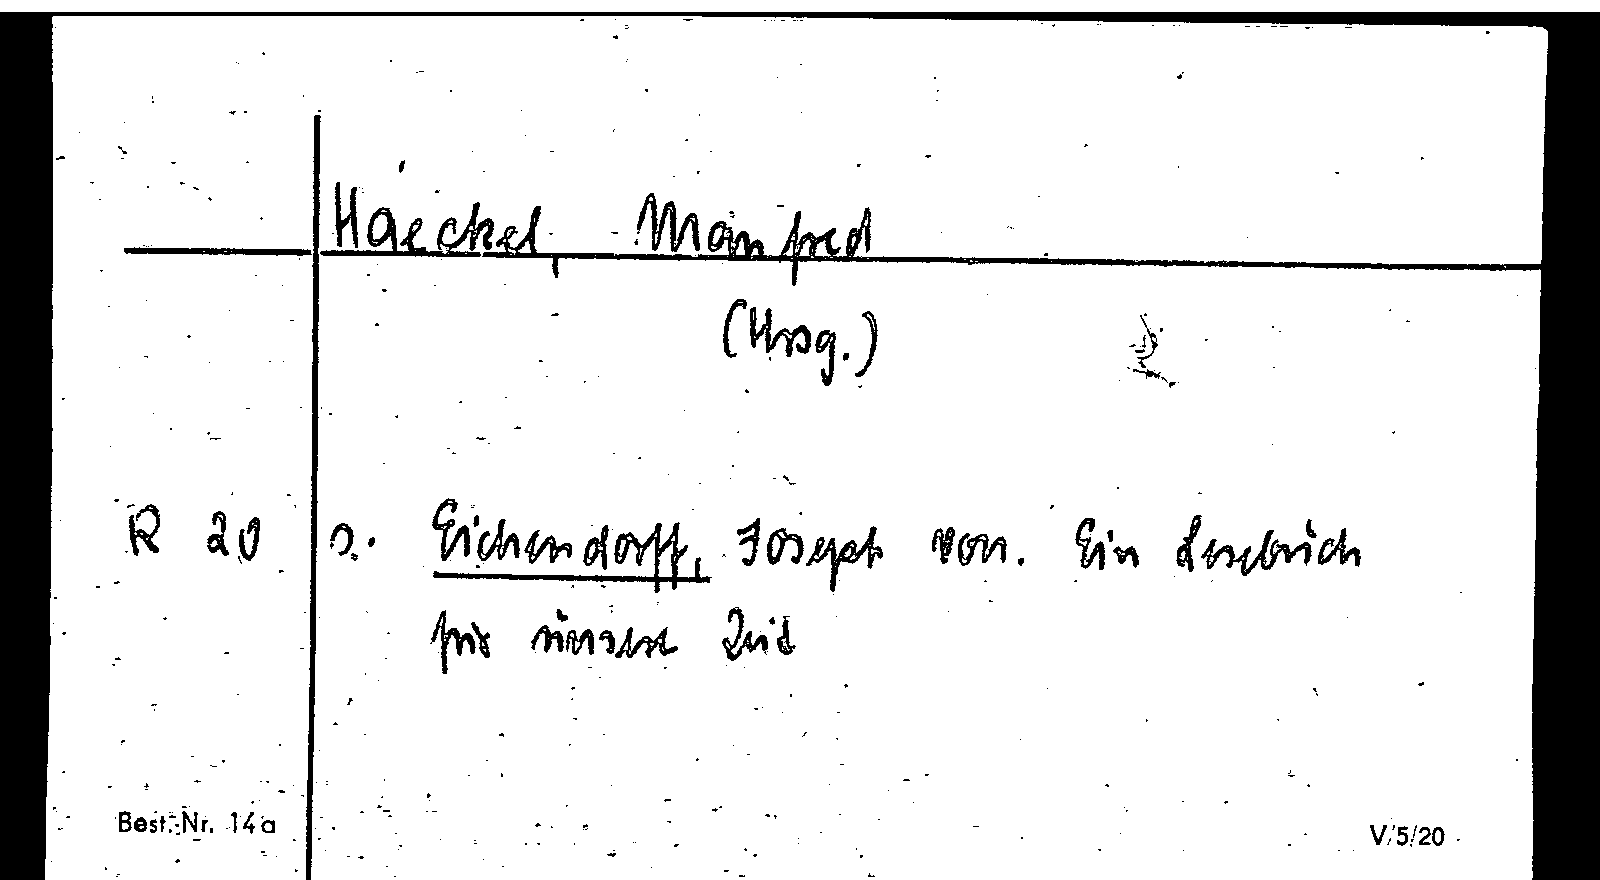 Haeckel, Manfred
(Hrsg.)
R 20 s. Eichendorff, Joseph von. Ein Lesebuch
für unsere Zeit
Best.-Nr. 14a V/5/20